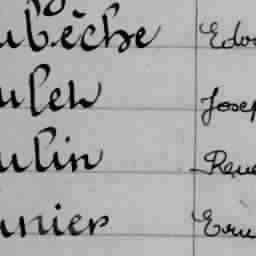 ubèche Edou
ulen Josep
ulin René
unier Ern